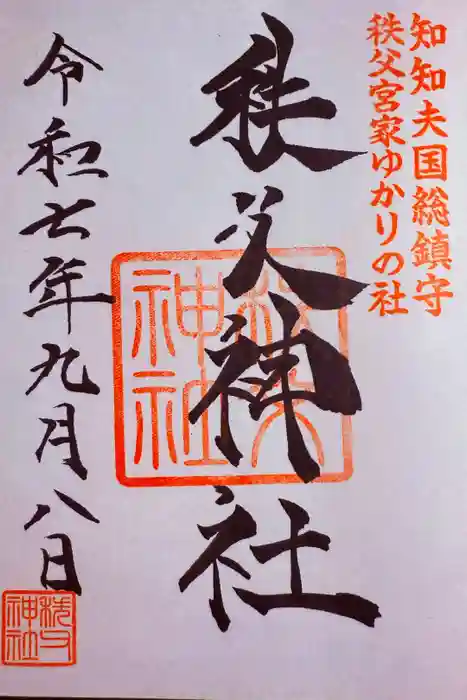 知知夫国総鎮守
秩父宮家ゆかりの社
秩父神社
秩父
神社
令和七年九月八日
秩父
神社